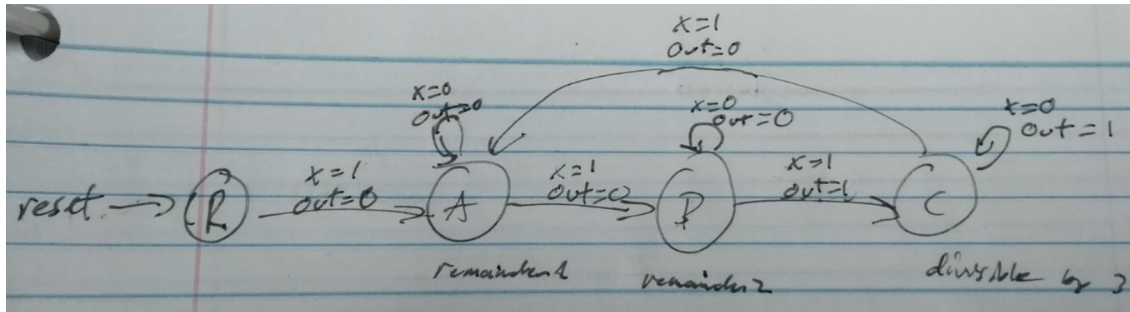 x=1
out=0
x=0
out=0
x=0
out=0
x=0
out=1
reset
R
x=1
out=0
A
x=1
out=0
B
x=1
out=1
C
remainder 1
remainder 2
divisible by 3